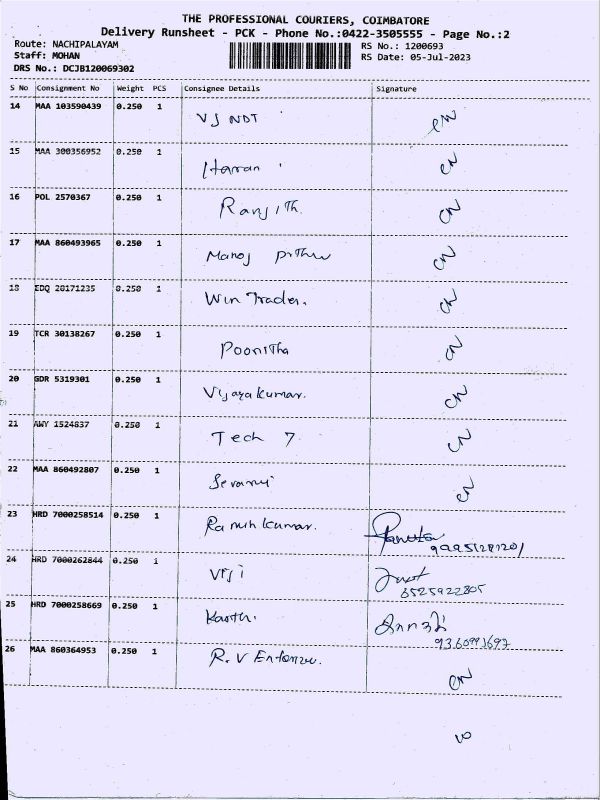 THE PROFESSIONAL COURIERS, COIMBATORE
Delivery Runsheet - PCK - Phone No.:0422-3505555 - Page No.:2
Route: NACHIPALAYAM RS No.: 1200693
Staff: MOHAN RS Date: 05-Jul-2023
DRS No.: DCJB120069302
S No Consignment No Weight PCS Consignee Details Signature
14 MAA 103590439 0.250 1 VJ NDT CN
15 MAA 300356952 0.250 1 CN
16 POL 2570367 0.250 1 Ranjith. CN
17 MAA 860493965 0.250 1 Manoj CN
18 EDQ 20171235 0.250 1 Win Trader. CN
19 TCR 30138267 0.250 1 Poonitha CN
20 GDR 5319301 0.250 1 Vijayakumar. CN
21 AWY 1524837 0.250 1 Tech 7 CN
22 MAA 860492807 0.250 1 CN
23 HRD 7000258514 0.250 1 kumar.
24 HRD 7000262844 0.250 1 Viji
6525922805
25 HRD 7000258669 0.250 1
26 MAA 860364953 0.250 1 R.V CN